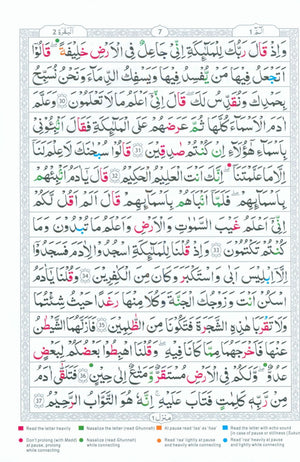 البقرة 2 7 الٓمّٓ ١
وَاِذْ قَالَ رَبُّكَ لِلْمَلٰٓئِكَةِ اِنِّيْ جَاعِلٌ فِي الْاَرْضِ خَلِيْفَةً ؕ قَالُوْٓا
اَتَجْعَلُ فِيْهَا مَنْ يُّفْسِدُ فِيْهَا وَيَسْفِكُ الدِّمَآءَ ۚ وَنَحْنُ نُسَبِّحُ
بِحَمْدِكَ وَنُقَدِّسُ لَكَ ؕ قَالَ اِنِّيْٓ اَعْلَمُ مَا لَا تَعْلَمُوْنَ 30 وَعَلَّمَ
اٰدَمَ الْاَسْمَآءَ كُلَّهَا ثُمَّ عَرَضَهُمْ عَلَى الْمَلٰٓئِكَةِ ۙ فَقَالَ اَنْۢبِـُٔوْنِيْ
بِاَسْمَآءِ هٰٓؤُلَآءِ اِنْ كُنْتُمْ صٰدِقِيْنَ 31 قَالُوْا سُبْحٰنَكَ لَا عِلْمَ لَنَآ
اِلَّا مَا عَلَّمْتَنَا ؕ اِنَّكَ اَنْتَ الْعَلِيْمُ الْحَكِيْمُ 32 قَالَ يٰٓاٰدَمُ اَنْۢبِئْهُمْ
بِاَسْمَآئِهِمْ ۚ فَلَمَّآ اَنْۢبَاَهُمْ بِاَسْمَآئِهِمْ ۙ قَالَ اَلَمْ اَقُلْ لَّكُمْ
اِنِّيْٓ اَعْلَمُ غَيْبَ السَّمٰوٰتِ وَالْاَرْضِ ۙ وَاَعْلَمُ مَا تُبْدُوْنَ وَمَا
كُنْتُمْ تَكْتُمُوْنَ 33 وَاِذْ قُلْنَا لِلْمَلٰٓئِكَةِ اسْجُدُوْا لِاٰدَمَ فَسَجَدُوْٓا
اِلَّآ اِبْلِيْسَ ؕ اَبٰى وَاسْتَكْبَرَ ۗ وَكَانَ مِنَ الْكٰفِرِيْنَ 34 وَقُلْنَا يٰٓاٰدَمُ
اسْكُنْ اَنْتَ وَزَوْجُكَ الْجَنَّةَ وَكُلَا مِنْهَا رَغَدًا حَيْثُ شِئْتُمَا
وَلَا تَقْرَبَا هٰذِهِ الشَّجَرَةَ فَتَكُوْنَا مِنَ الظّٰلِمِيْنَ 35 فَاَزَلَّهُمَا الشَّيْطٰنُ
عَنْهَا فَاَخْرَجَهُمَا مِمَّا كَانَا فِيْهِ ۪ وَقُلْنَا اهْبِطُوْا بَعْضُكُمْ لِبَعْضٍ
عَدُوٌّ ۚ وَلَكُمْ فِي الْاَرْضِ مُسْتَقَرٌّ وَّمَتَاعٌ اِلٰى حِيْنٍ 36 فَتَلَقّٰٓى اٰدَمُ
مِنْ رَّبِّهٖ كَلِمٰتٍ فَتَابَ عَلَيْهِ ؕ اِنَّهٗ هُوَ التَّوَّابُ الرَّحِيْمُ 37
منزل ١
Read the letter heavily
Nasalize the letter (read Ghunnah)
At pause read 'taa' as 'haa'
Read the letter with echo sound (in case of pause or stillness (Sukun))
Don't prolong (with Madd) at pause, prolong while connecting
Nasalize (read Ghunnah) while connecting
Read 'raa' lightly at pause and heavily while connecting
Read 'raa' heavily at pause and lightly while connecting